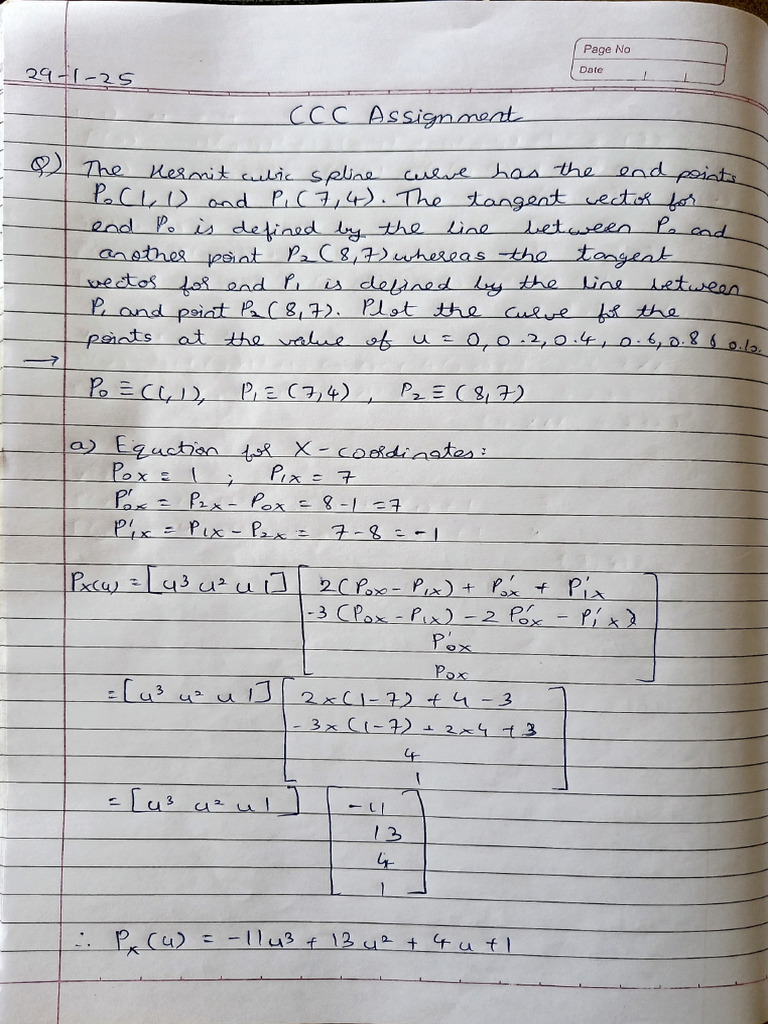 Page No
Date
29-1-25
CCC Assignment
Q) The Hermit cubic spline curve has the end points
P₀(1,1) and P₁(7,4). The tangent vector for
end P₀ is defined by the line between P₀ and
another point P₂(8,7) whereas the tangent
vector for end P₁ is defined by the line between
P₁ and point P₂(8,7). Plot the curve for the
points at the value of u = 0, 0.2, 0.4, 0.6, 0.8 & 0.10.
→
P₀ ≡ (1,1), P₁ ≡ (7,4), P₂ ≡ (8,7)
a) Equation for X-coordinates:
P₀x = 1 ; P₁x = 7
P'₀x = P₂x - P₀x = 8-1 = 7
P'₁x = P₁x - P₂x = 7-8 = -1
Px(u) = [u³ u² u 1] [ 2(P₀x - P₁x) + P'₀x + P'₁x
-3(P₀x - P₁x) - 2P'₀x - P'₁x)
P'₀x
P₀x ]
= [u³ u² u 1] [ 2×(1-7) + 4 - 3
-3×(1-7) + 2×4 + 3
4
1 ]
= [u³ u² u 1] [ -11
13
4
1 ]
∴ Px(u) = -11u³ + 13u² + 4u + 1